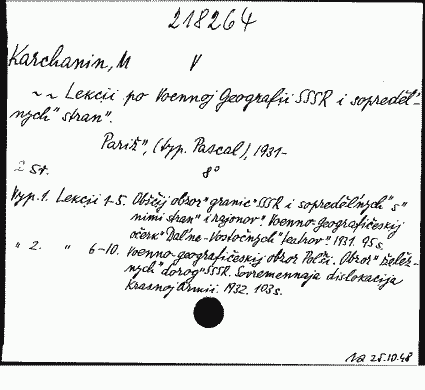 218264
Karchanin, M V
~ ~ Lekcii po Voennoj Geografii SSSR i sopreděl'-
nych" stran".
Pariž", (typ. Pascal), 1931-
2 St. 8°
Vyp. 1. Lekcii 1-5. Obščij obzor" granic" SSSR i sopreděl'nych" s"
nimi stran" i rajonov". Voenno-geografičeskij
očerk" Dal'ne-Vostočnych" teatrov". 1931. 95 s.
" 2. " 6-10. Voenno-geografičeskij obzor Pol'ši. Obzor" želěz-
nych" dorog" SSSR. Sovremennaja dislokacija
Krasnoj Armii. 1932. 103 s.
Na 25.10.48